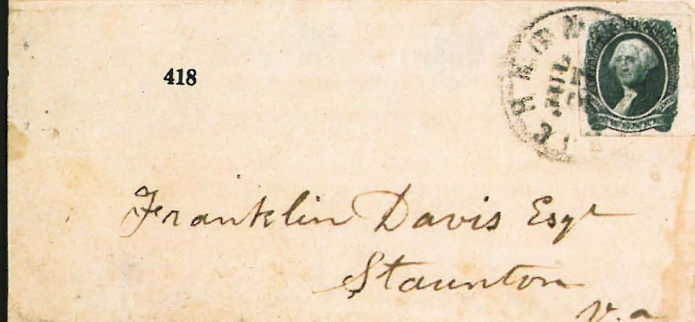 418
Franklin Davis Esqr
Staunton
Va